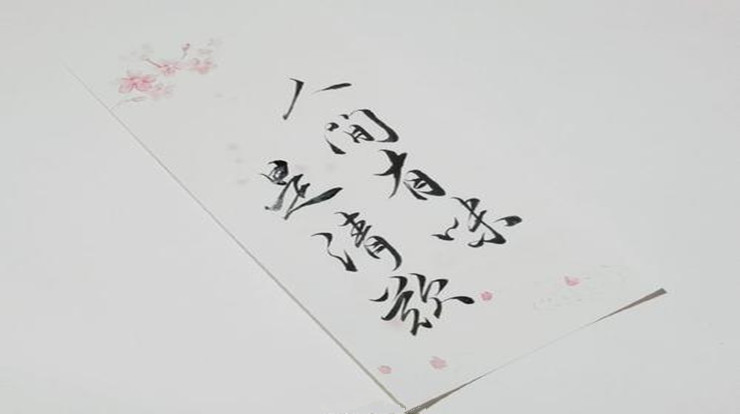 人间有味
是清欢